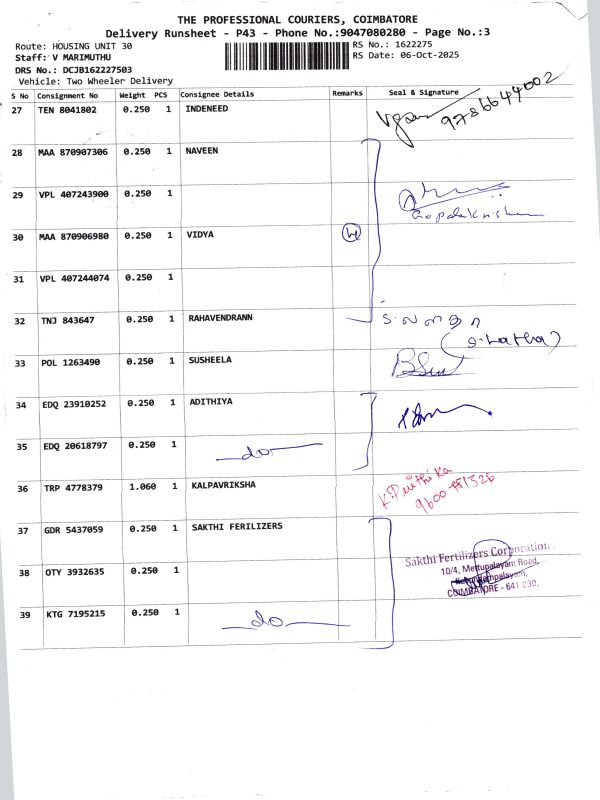 THE PROFESSIONAL COURIERS, COIMBATORE
Delivery Runsheet - P43 - Phone No.:9047080280 - Page No.:3
Route: HOUSING UNIT 30
RS No.: 1622275
Staff: V MARIMUTHU
RS Date: 06-Oct-2025
DRS No.: DCJB162227503
Vehicle: Two Wheeler Delivery
S No Consignment No Weight PCS Consignee Details Remarks Seal & Signature
27 TEN 8041802 0.250 1 INDENEED 9786644002
28 MAA 870907306 0.250 1 NAVEEN
29 VPL 407243900 0.250 1 Gopalakrishnan
30 MAA 870906980 0.250 1 VIDYA
31 VPL 407244074 0.250 1
32 TNJ 843647 0.250 1 RAHAVENDRANN S. லதா
(S. Latha)
33 POL 1263490 0.250 1 SUSHEELA
34 EDQ 23910252 0.250 1 ADITHIYA
35 EDQ 20618797 0.250 1 do
36 TRP 4778379 1.060 1 KALPAVRIKSHA
37 GDR 5437059 0.250 1 SAKTHI FERILIZERS
Sakthi Fertilizers Corporation
10/4, Mettupalayam Road,
38 OTY 3932635 0.250 1
COIMBATORE - 641 030.
39 KTG 7195215 0.250 1 do